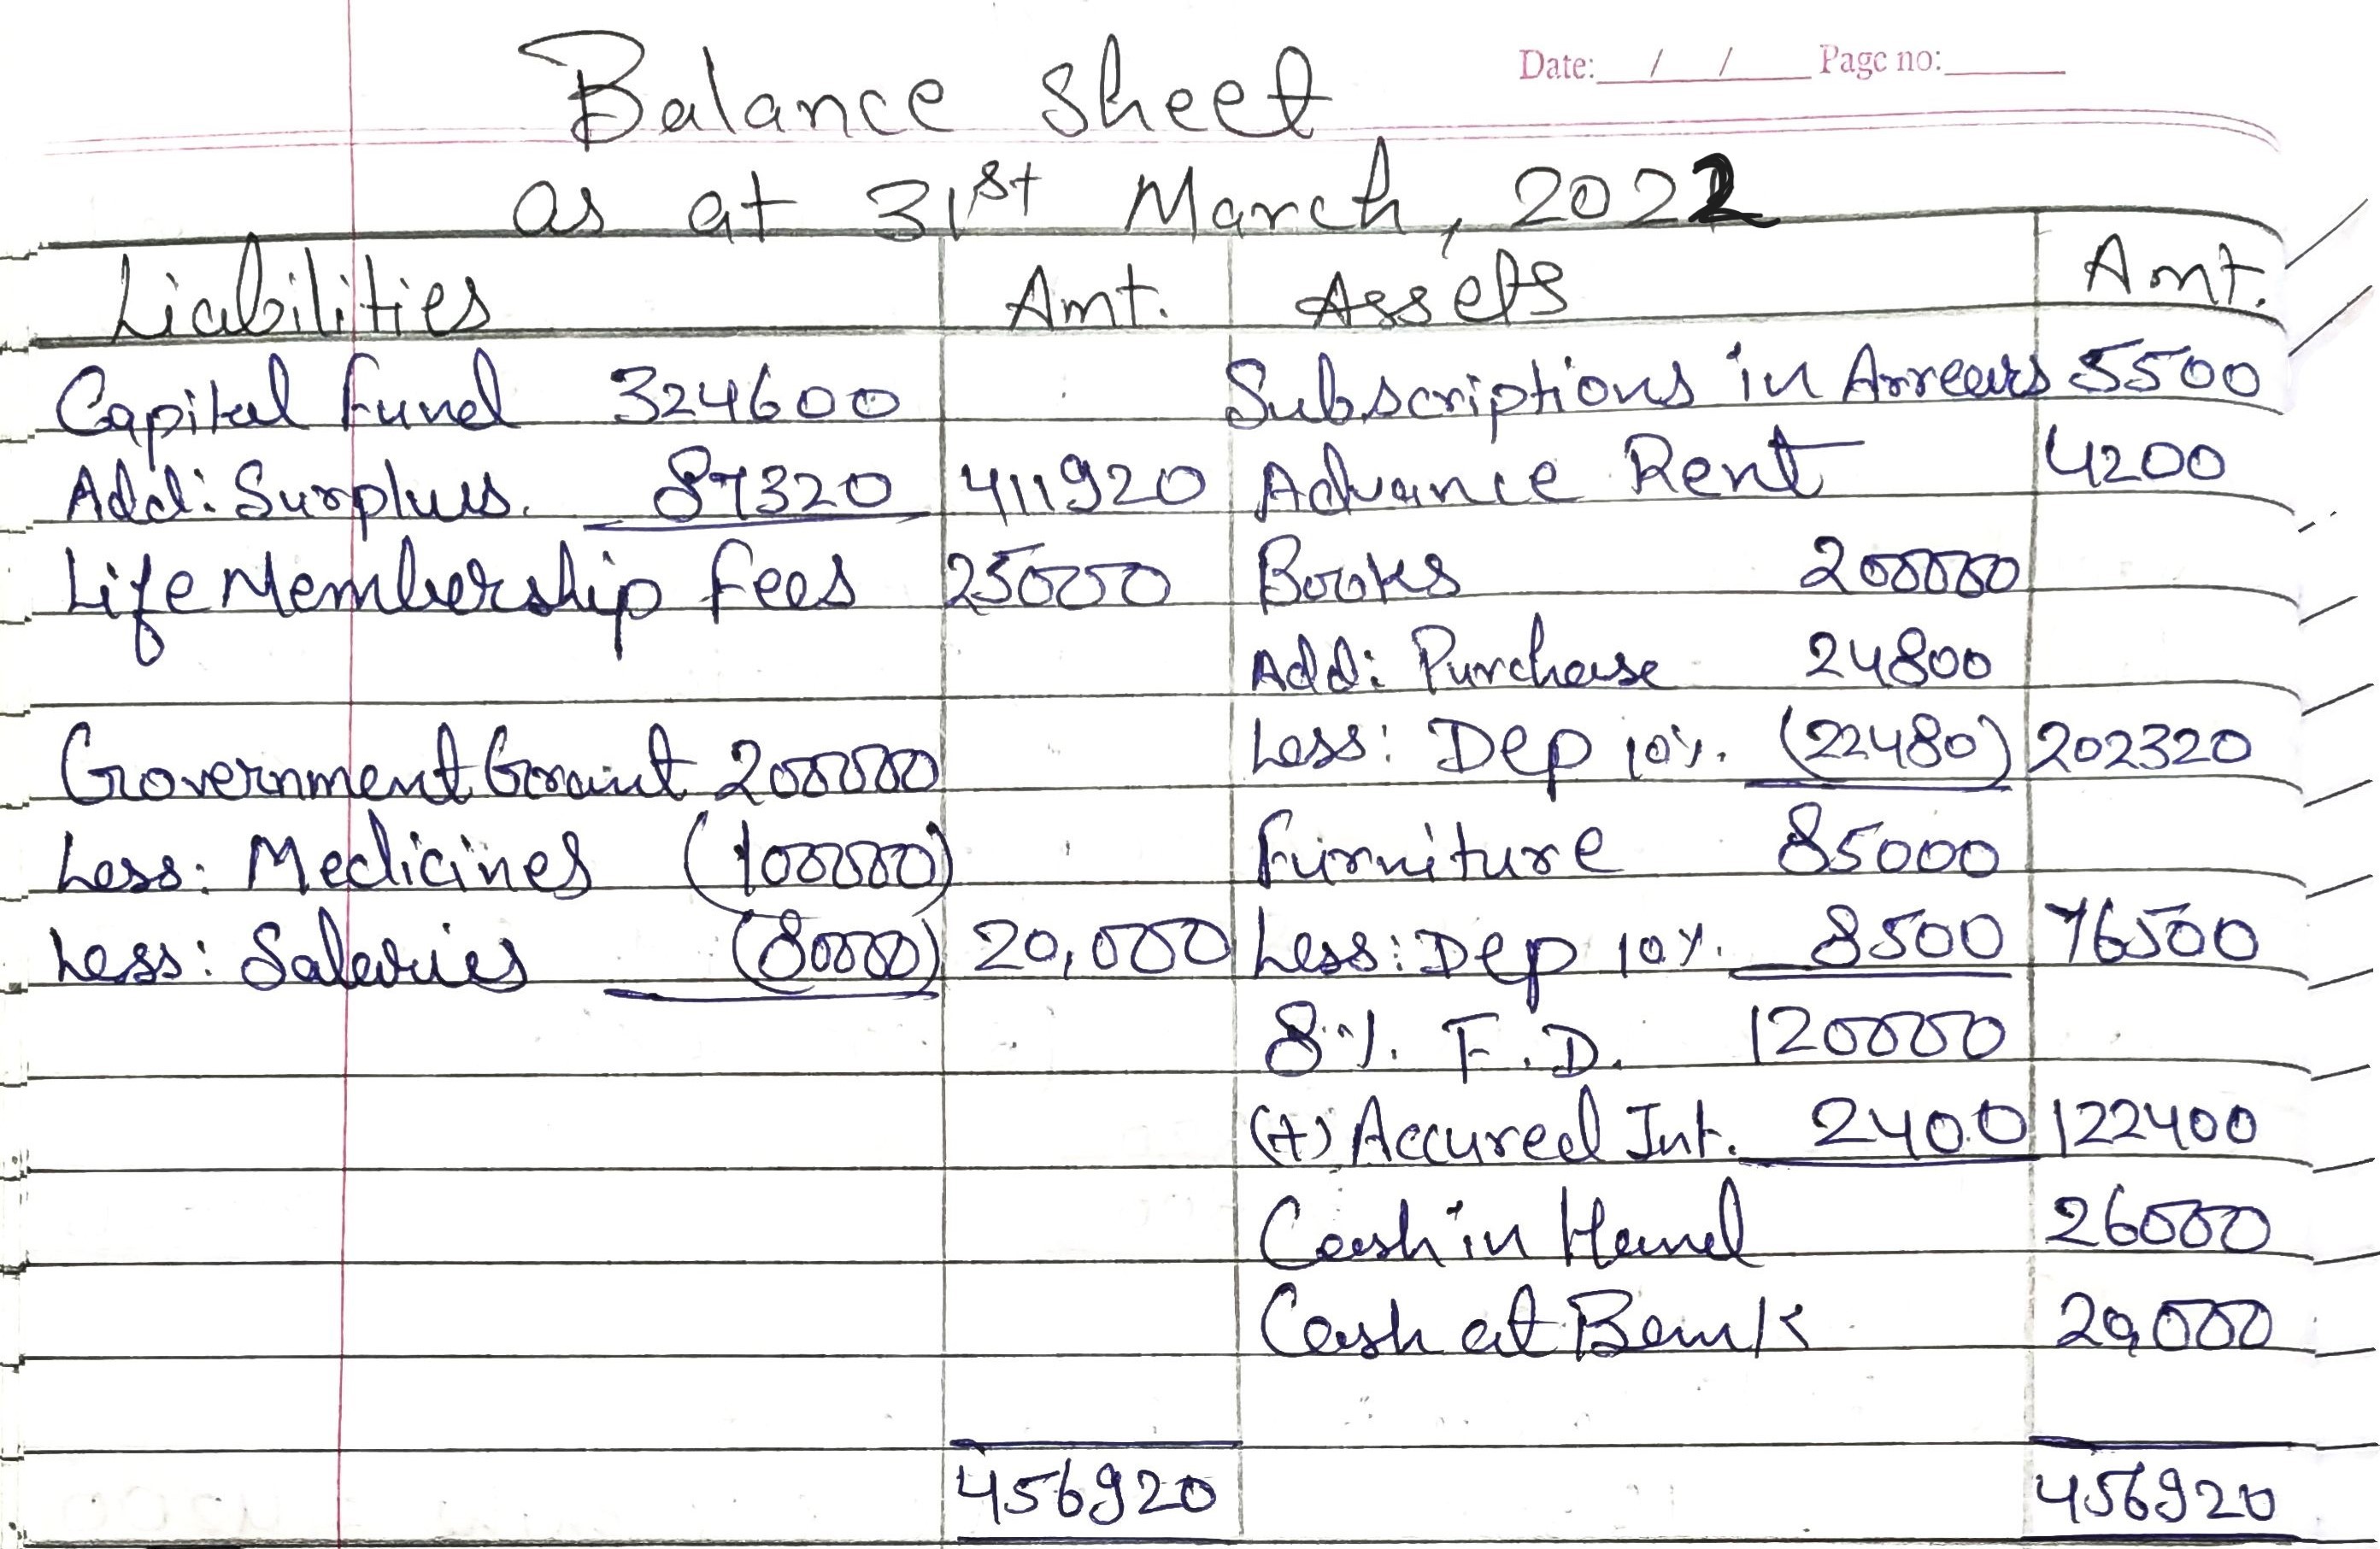 Date: / / Page no:
Balance Sheet
as at 31st March, 2022
Liabilities Amt. Assets Amt.
Capital Fund 324600 Subscriptions in Arrears 5500
Add: Surplus. 87320 411920 Advance Rent 4200
Life Membership Fees 25000 Books 200000
Add: Purchase 24800
Government Grant 200000 Less: Dep 10%. (22480) 202320
Less: Medicines (100000) Furniture 85000
Less: Salaries (80000) 20,000 Less: Dep 10%. 8500 76500
8%. F.D. 120000
(+) Accureed Int. 2400 122400
Cash in Hand 26000
Cash at Bank 20,000
456920 456920